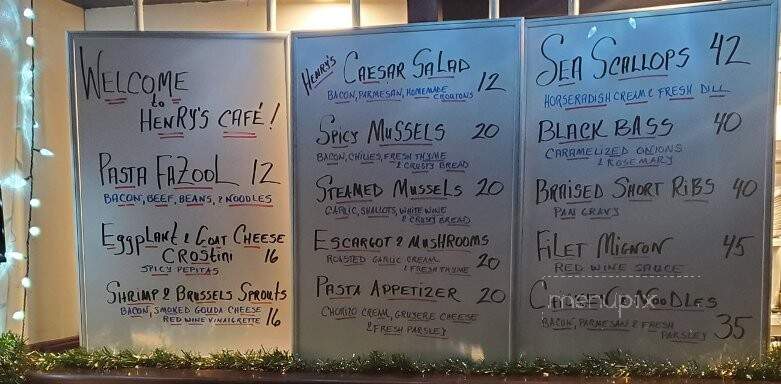 WELCOME
to
HENRY'S CAFÉ!
PASTA FAZOOL 12
BACON, BEEF, BEANS, & NOODLES
EGGPLANT & GOAT CHEESE
CROSTINI 16
SPICY PEPITAS
SHRIMP & BRUSSELS SPROUTS
BACON, SMOKED GOUDA CHEESE
RED WINE VINAIGRETTE 16
HENRY'S CAESAR SALAD 12
BACON, PARMESAN, HOMEMADE
CROUTONS
SPICY MUSSELS 20
BACON, CHILIES, FRESH THYME
& CRUSTY BREAD
STEAMED MUSSELS 20
GARLIC, SHALLOTS, WHITE WINE
& CRUSTY BREAD
ESCARGOT & MUSHROOMS
ROASTED GARLIC CREAM
& FRESH THYME 20
PASTA APPETIZER 20
CHORIZO CREAM, GRUYERE CHEESE
& FRESH PARSLEY
SEA SCALLOPS 42
HORSERADISH CREAM & FRESH DILL
BLACK BASS 40
CARAMELIZED ONIONS
& ROSEMARY
BRAISED SHORT RIBS 40
PAN GRAVY
FILET MIGNON 45
RED WINE SAUCE
menupix
NOODLES
BACON, PARMESAN & FRESH
PARSLEY 35